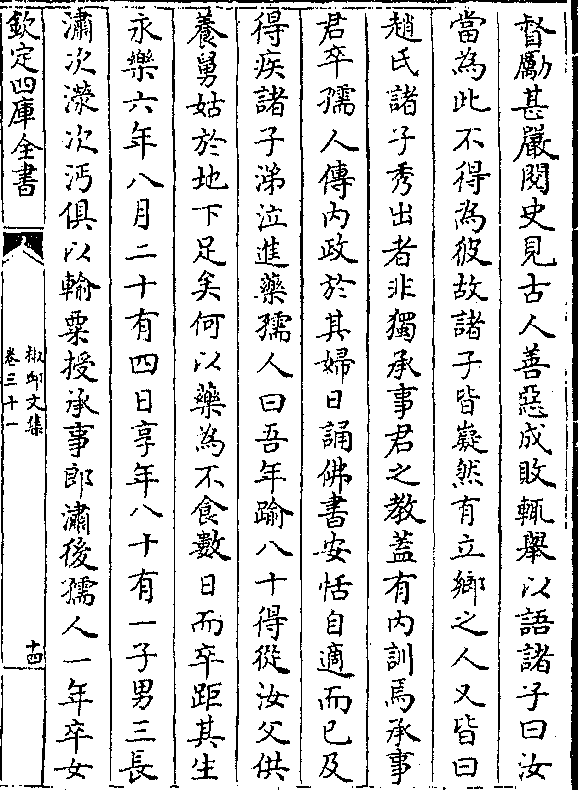 督勵甚嚴閱史見古人善惡成敗輒舉以語諸子曰汝
當為此不得為彼故諸子皆嶷然有立鄉之人又皆曰
趙氏諸子秀出者非獨承事君之教蓋有內訓焉承事
君卒孺人傳內政於其婦日誦佛書安恬自適而已及
得疾諸子涕泣進藥孺人曰吾年踰八十得從汝父供
養舅姑於地下足矣何以藥為不食數日而卒距其生
永樂六年八月二十有四日享年八十有一子男三長
潚次濙次沔俱以輸粟授承事郎潚後孺人一年卒女
欽定四庫全書
椒邱文集
卷三十一
十四